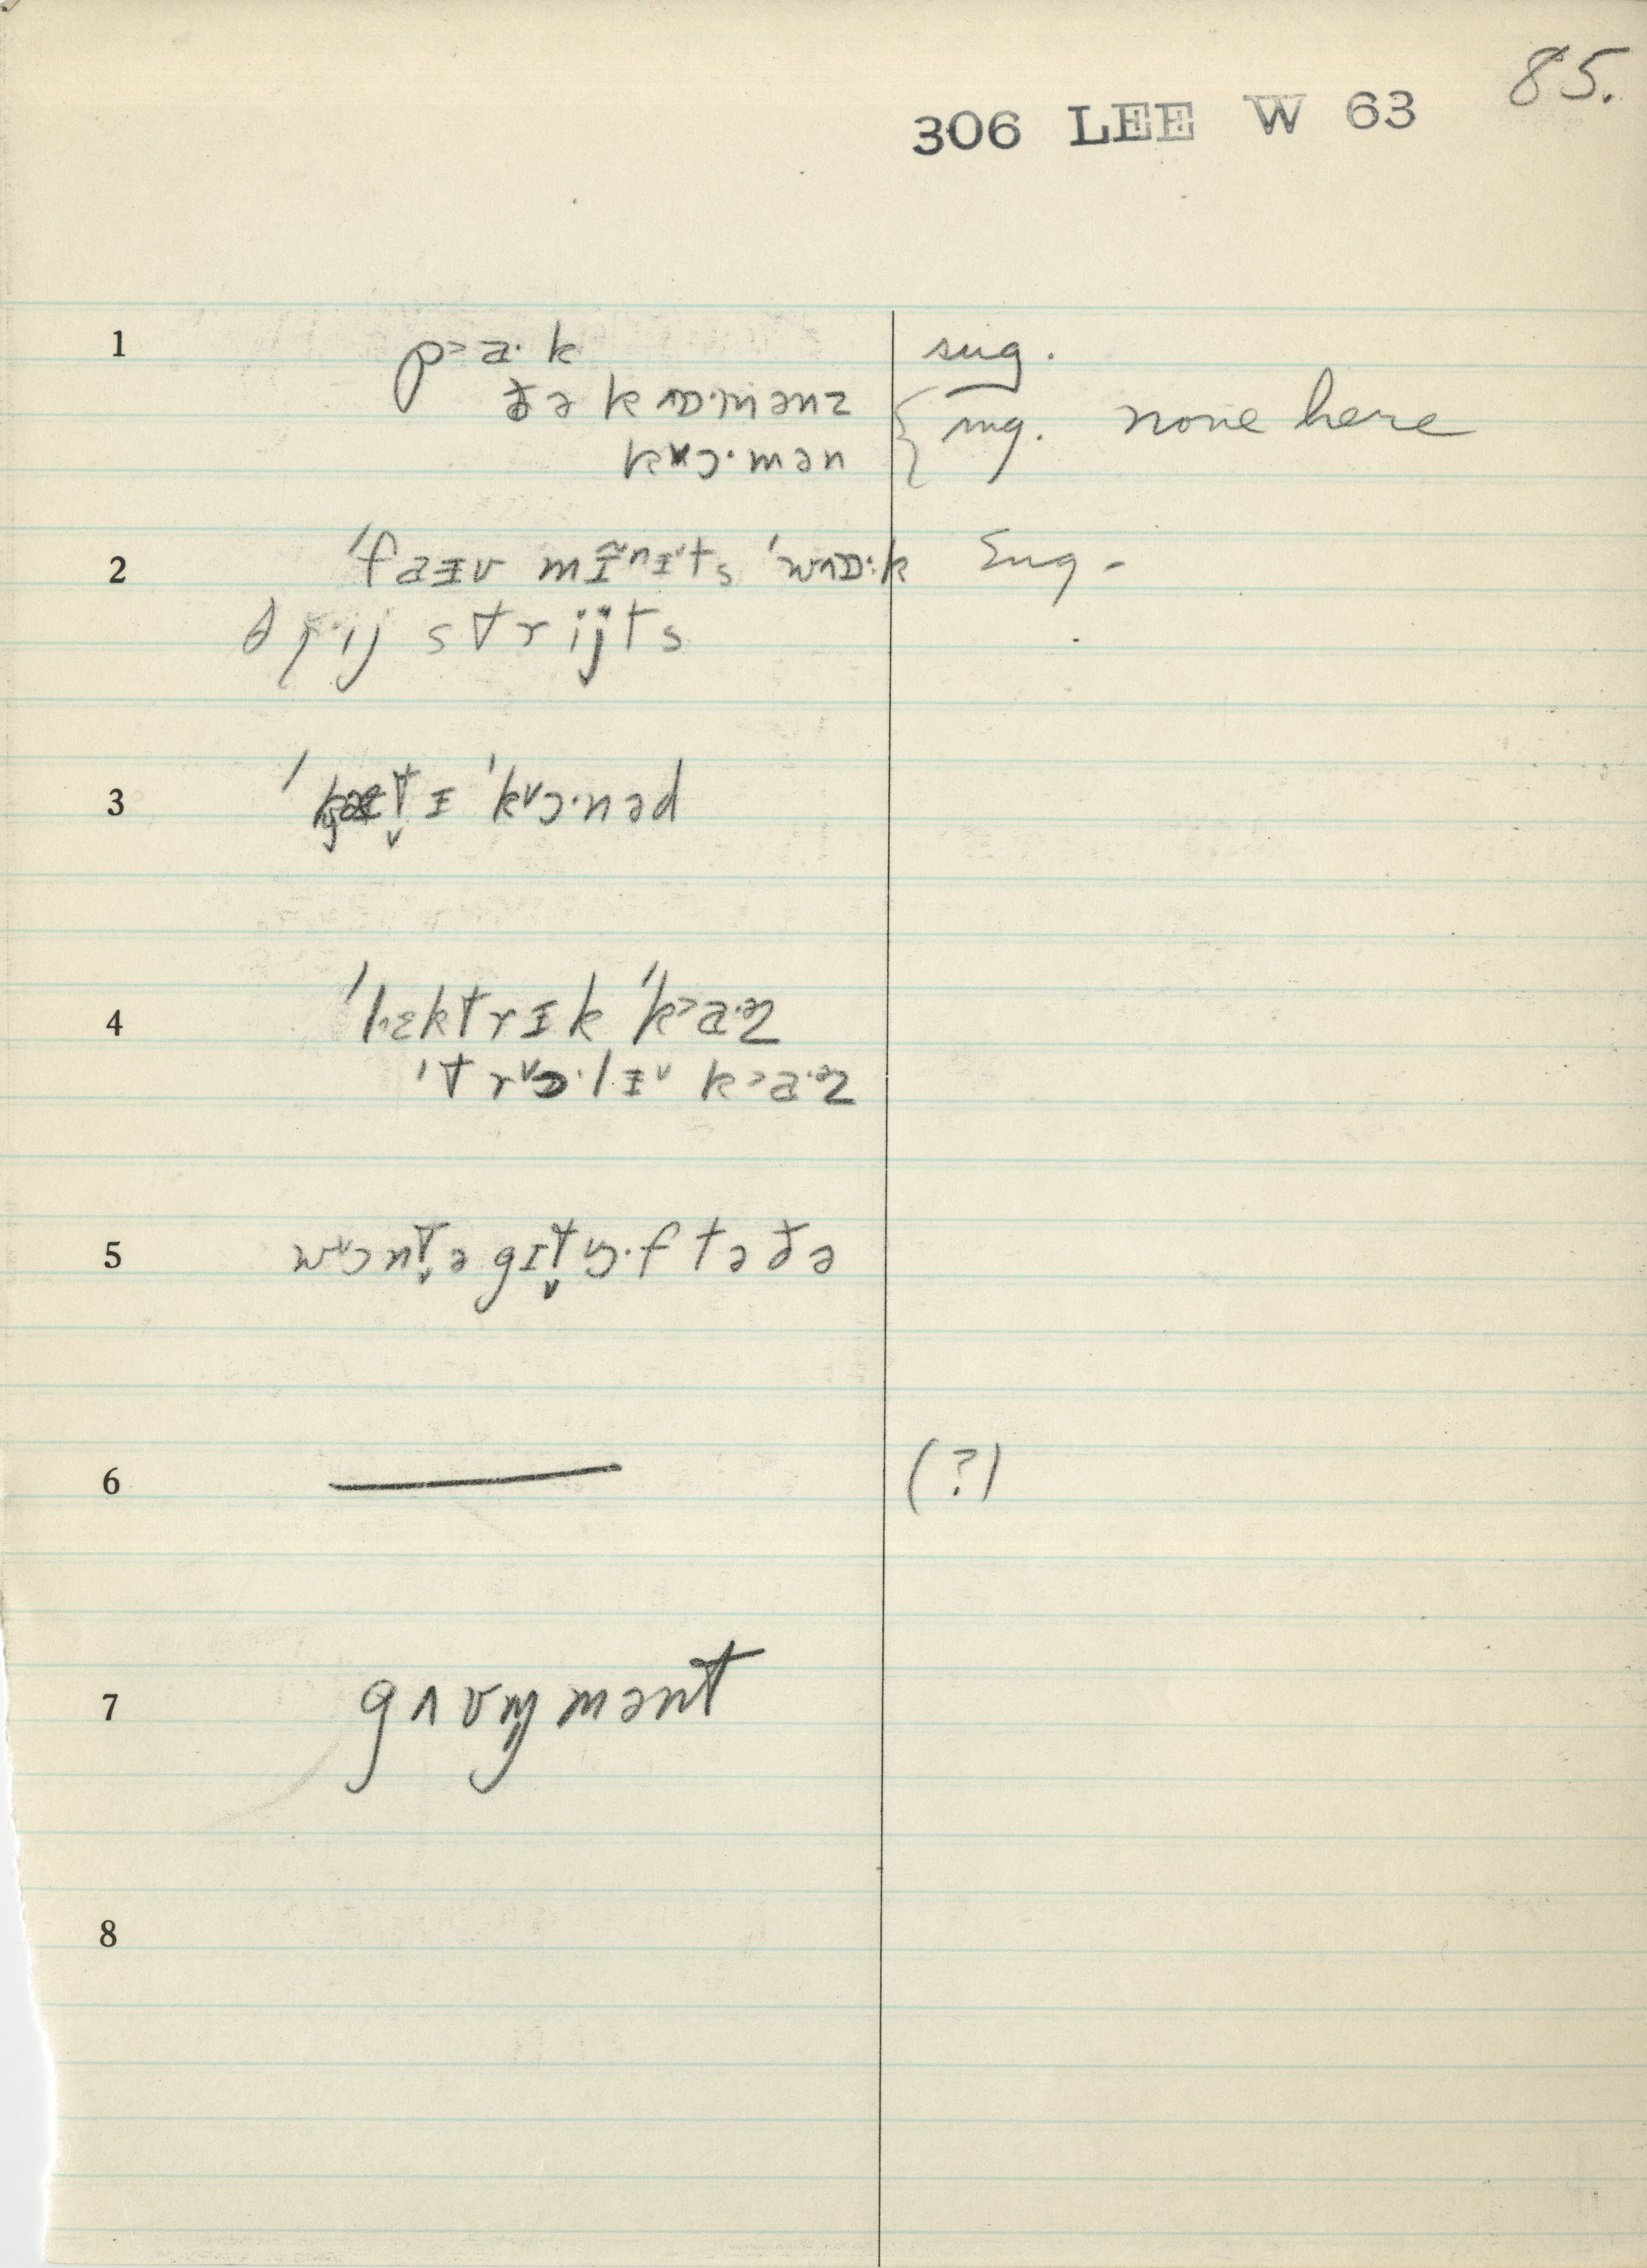 85.
306 LEE W 63
1 p˃a·k sug.
ðə kɒ·mənz sug. none here
kɔ·mən
2 ˈfaɪv mɪ̃nɪts ˈwɒ·k sug.
strijts
3 ˈkɔ·nəd
4 ˈlɛktrɪk ˈk˃a·ɚz
ˈtrɔ·lɪ k˃a·ɚz
5 wɔnt̬ə gɪt̬ ɔ·f tə ðə
6 — (?)
7 gʌvm̩mənt
8